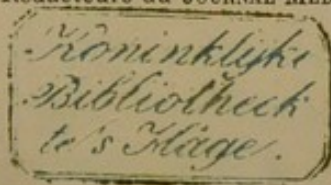 JOURNAL
Koninklijke
Bibliotheek
te 's Hage.